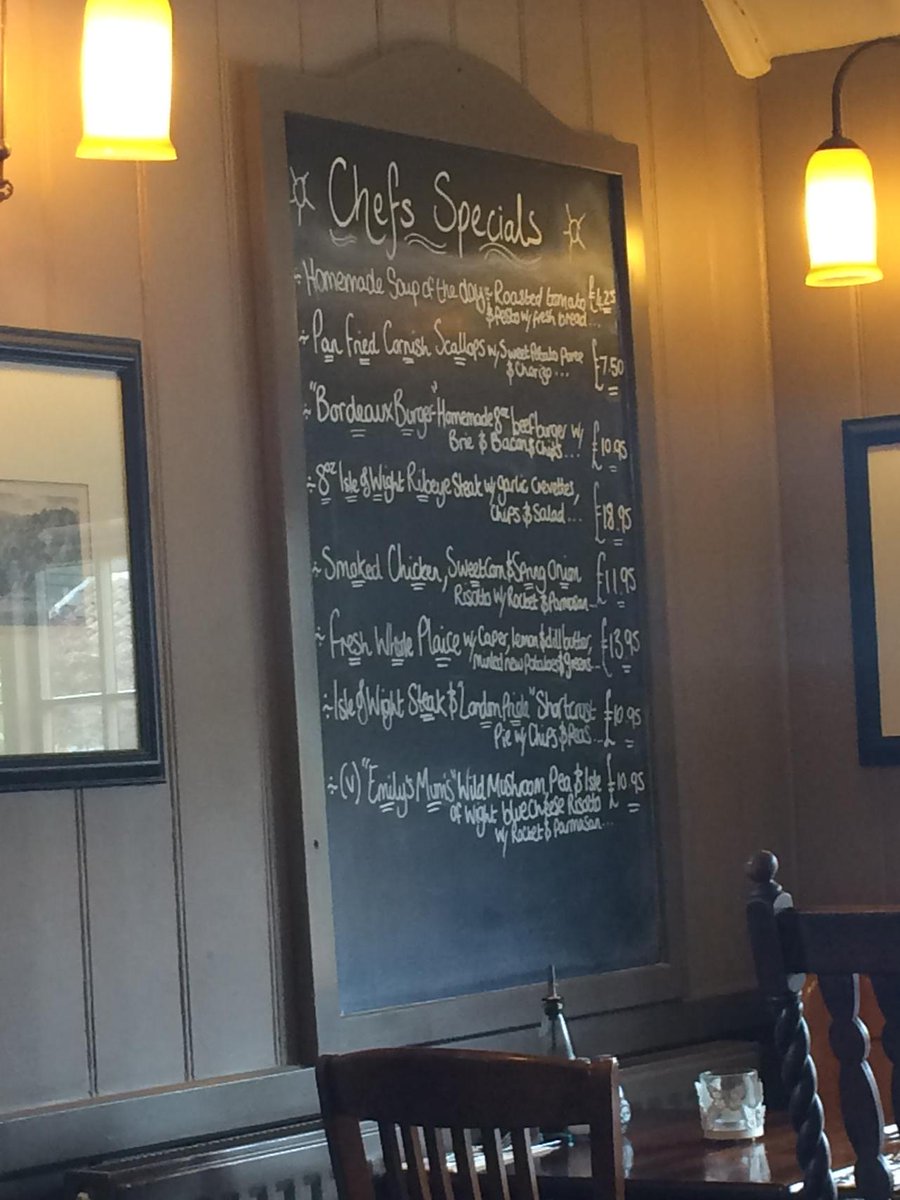 Chefs Specials
÷ Homemade Soup of the day ÷ Roasted tomato £4.25
& Pesto w/ fresh bread...
÷ Pan Fried Cornish Scallops w/ Sweet Potato Puree £7.50
& Chorizo...
÷ "Bordeaux Burger" Homemade 8oz beef burger w/ £10.95
Brie & Bacon & Chips...
÷ 8oz Isle of Wight Ribeye Steak w/ garlic Crevettes, £18.95
Chips & Salad...
÷ Smoked Chicken, Sweetcorn & Spring Onion £11.95
Risotto w/ Rocket & Parmasan...
÷ Fresh Whole Plaice w/ Caper, lemon & dill butter, £13.95
minted new potatoes & greens...
÷ Isle of Wight Steak & "London Pride" Shortcrust £10.95
Pie w/ Chips & Peas...
÷ (v) "Emily's Mum's" Wild Mushroom, Pea, & Isle £10.95
of Wight blue Cheese Risotto
w/ Rocket & Parmasan...